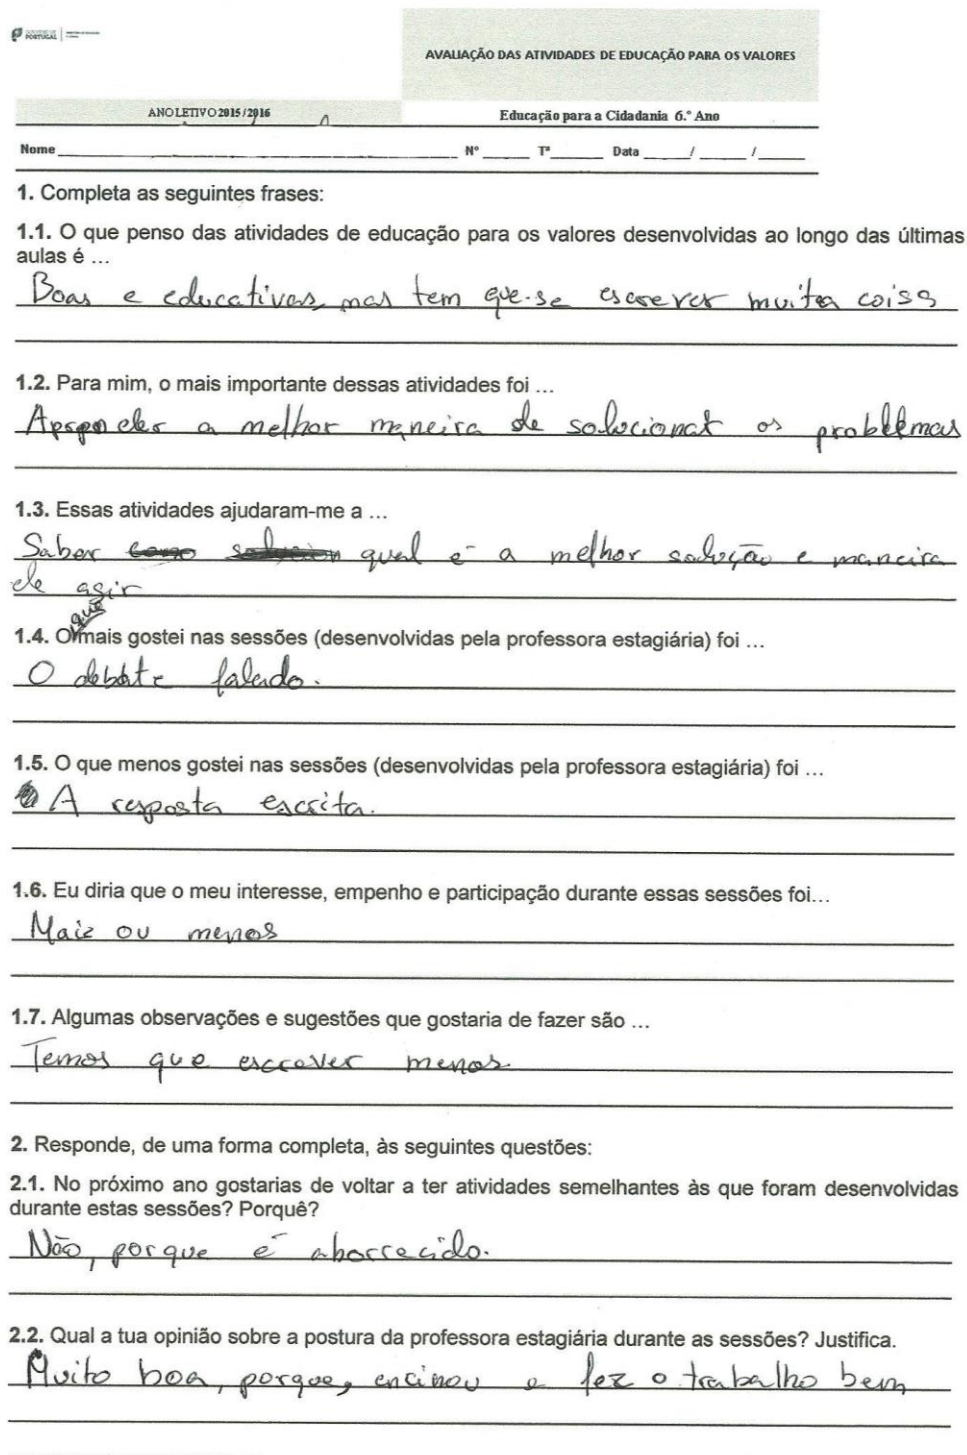 GOVERNO DE
PORTUGAL
AVALIAÇÃO DAS ATIVIDADES DE EDUCAÇÃO PARA OS VALORES
ANO LETIVO 2015/2016
Educação para a Cidadania 6.º Ano
Nome Nº Tª Data / /
1. Completa as seguintes frases:
1.1. O que penso das atividades de educação para os valores desenvolvidas ao longo das últimas
aulas é ...
Boas e educativas, mas tem que-se escrever muita coisa
1.2. Para mim, o mais importante dessas atividades foi ...
a melhor maneira de solucionar os problemas
1.3. Essas atividades ajudaram-me a ...
Saber como qual é a melhor solução e maneira
de agir
que
1.4. O mais gostei nas sessões (desenvolvidas pela professora estagiária) foi ...
O debate falado.
1.5. O que menos gostei nas sessões (desenvolvidas pela professora estagiária) foi ...
A resposta escrita.
1.6. Eu diria que o meu interesse, empenho e participação durante essas sessões foi...
Mais ou menos
1.7. Algumas observações e sugestões que gostaria de fazer são ...
Temos que escrever menos
2. Responde, de uma forma completa, às seguintes questões:
2.1. No próximo ano gostarias de voltar a ter atividades semelhantes às que foram desenvolvidas
durante estas sessões? Porquê?
Não, porque é aborrecido.
2.2. Qual a tua opinião sobre a postura da professora estagiária durante as sessões? Justifica.
Muito boa, porque, encinou e fez o trabalho bem